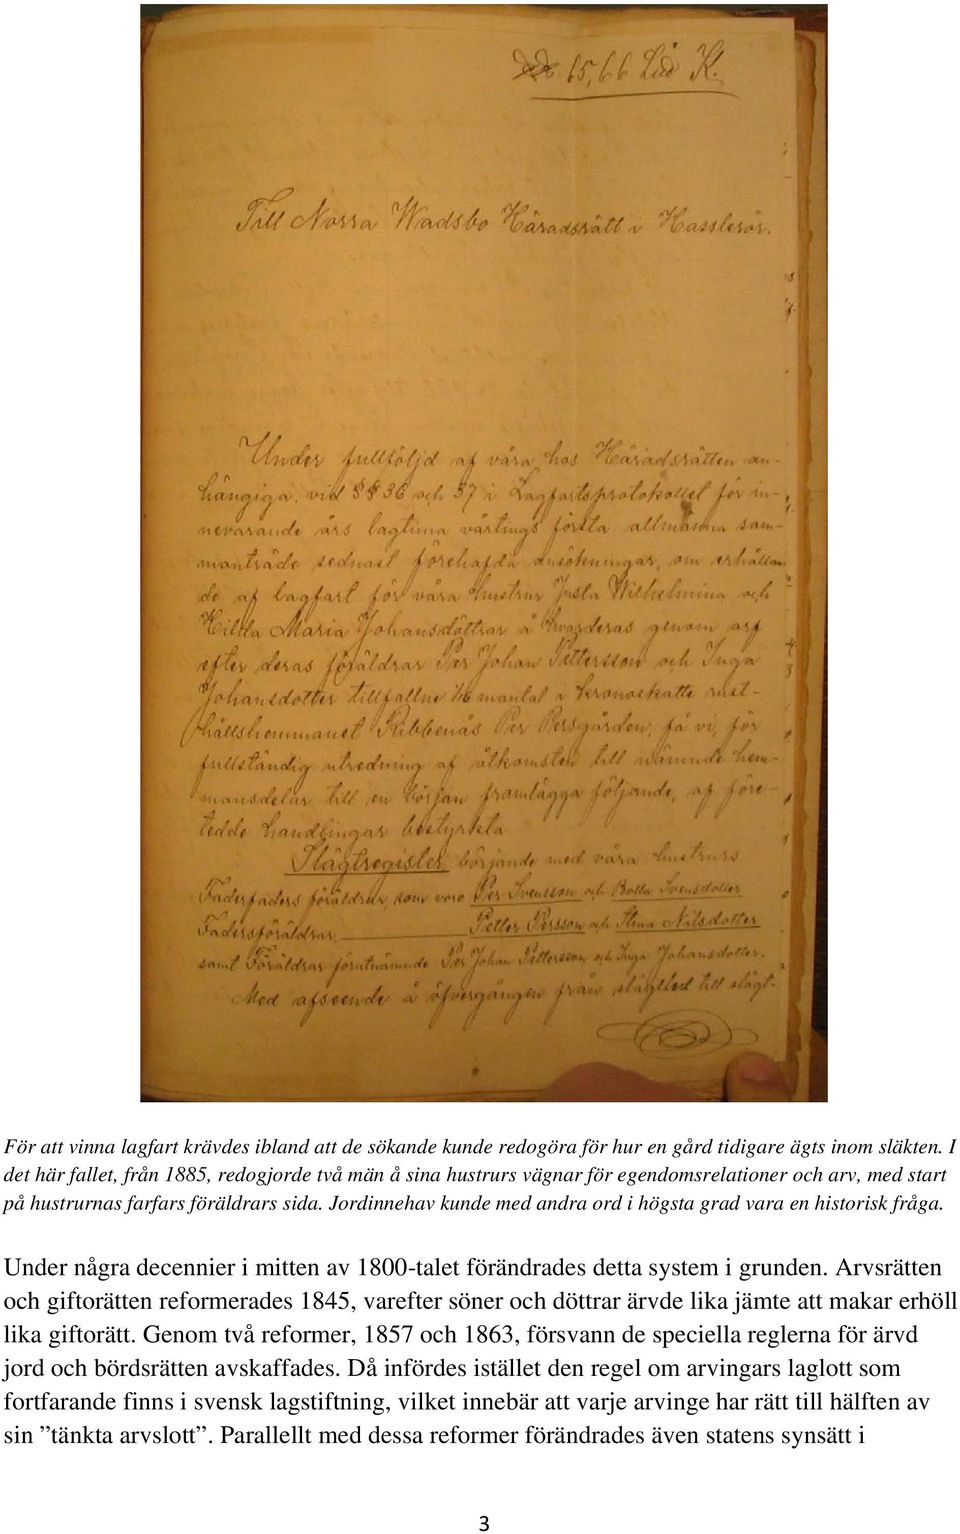 65, 66 Lit K.
Till Norra Wadsbo Häradsrätt i Hasslerör.
Under fullföljd af våra hos Häradsrätten an-
hängiga, vid §§ 36 och 37 i Lagfartsprotokollet för in-
nevarande års lagtima vårtings första allmänna sam-
manträde sednast förehafda ansökningar, om erhållan
de af lagfart för våra hustrur Justa Wilhelmina och
Hilda Maria Johansdöttrar å hvarderas genom arf
efter deras föräldrar Per Johan Pettersson och Inga
Johansdotter tillfallne 1/16 mantal i kronoskatte rust-
hållshemmanet Ribbenäs Per Persgården, få vi, för
fullständig utredning af åtkomsten till nämnde hem-
mansdelar till en början framlägga följande, af före-
tedde handlingar bestyrkta
Slägtregister, börjande med våra hustrurs
Faderfaders föräldrar, som voro Per Svensson och Botla Svensdotter
Fadersföräldrar, Petter Persson och Stina Nilsdotter
samt Föräldrar förutnämnde Per Johan Pettersson och Inga Johansdotter.
Med afseende å öfvergången från slägtled till slägt-
För att vinna lagfart krävdes ibland att de sökande kunde redogöra för hur en gård tidigare ägts inom släkten. I
det här fallet, från 1885, redogjorde två män å sina hustrurs vägnar för egendomsrelationer och arv, med start
på hustrurnas farfars föräldrars sida. Jordinnehav kunde med andra ord i högsta grad vara en historisk fråga.
Under några decennier i mitten av 1800-talet förändrades detta system i grunden. Arvsrätten
och giftorätten reformerades 1845, varefter söner och döttrar ärvde lika jämte att makar erhöll
lika giftorätt. Genom två reformer, 1857 och 1863, försvann de speciella reglerna för ärvd
jord och bördsrätten avskaffades. Då infördes istället den regel om arvingars laglott som
fortfarande finns i svensk lagstiftning, vilket innebär att varje arvinge har rätt till hälften av
sin ”tänkta arvslott”. Parallellt med dessa reformer förändrades även statens synsätt i
3